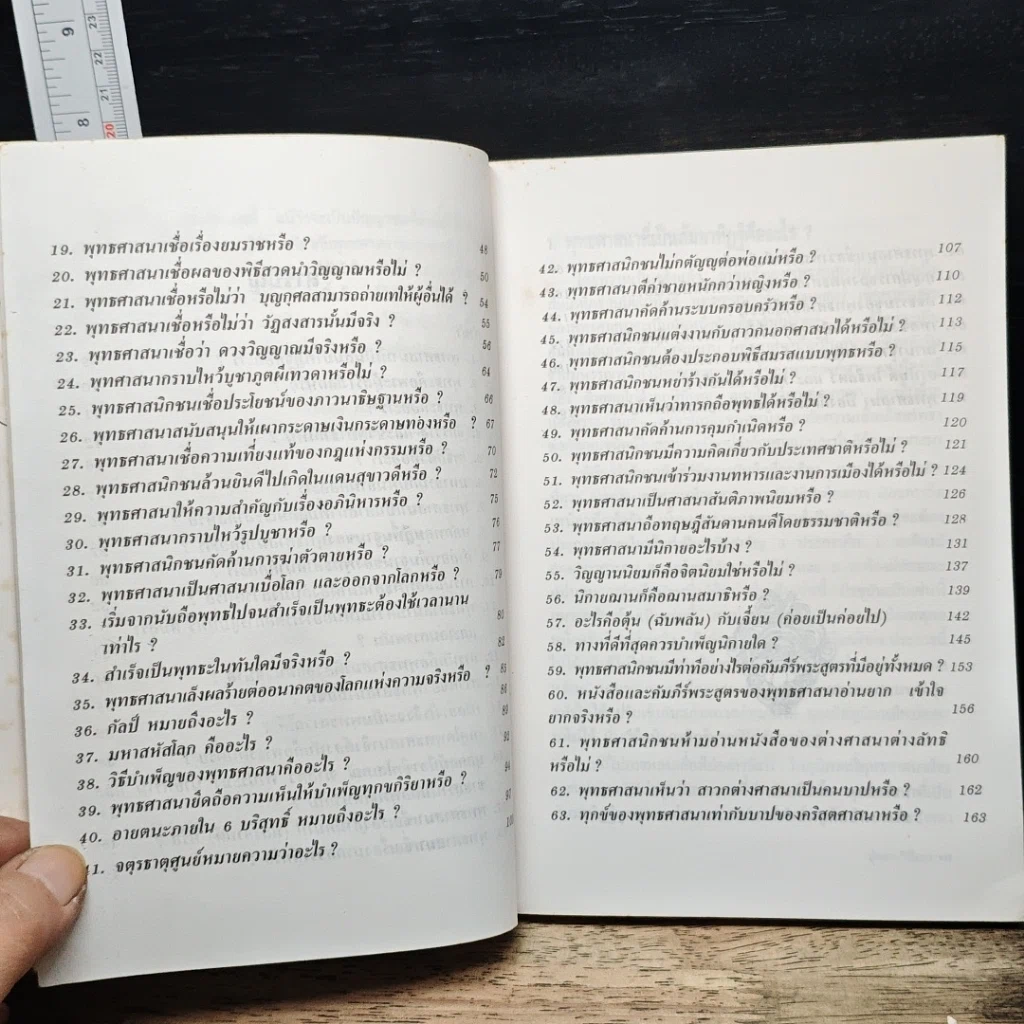 19. พุทธศาสนาเชื่อเรื่องยมราชหรือ ? 48
20. พุทธศาสนาเชื่อผลของพิธีสวดนำวิญญาณหรือไม่ ? 50
21. พุทธศาสนาเชื่อหรือไม่ว่า บุญกุศลสามารถถ่ายเทให้ผู้อื่นได้ ? 54
22. พุทธศาสนาเชื่อหรือไม่ว่า วัฏสงสารนั้นมีจริง ? 55
23. พุทธศาสนาเชื่อว่า ดวงวิญญาณมีจริงหรือ ? 56
24. พุทศาสนากราบไหว้บูชาภูตผีเทวดาหรือไม่ ? 64
25. พุทธศาสนิกชนเชื่อประโยชน์ของภาวนาธิษฐานหรือ ? 66
26. พุทธศาสนาสนับสนุนให้เผากระดาษเงินกระดาษทองหรือ ? 67
27. พุทธศาสนาเชื่อความเที่ยงแท้ของกฎแห่งกรรมหรือ ? 70
28. พุทธศาสนิกชนล้วนยินดีไปเกิดในแดนสุขาวดีหรือ ? 72
29. พุทธศาสนาให้ความสำคัญกับเรื่องอภินิหารหรือ ? 75
30. พุทธศาสนากราบไหว้รูปบูชาหรือ ? 76
31. พุทธศาสนิกชนคัดค้านการฆ่าตัวตายหรือ ? 77
32. พุทธศาสนาเป็นศาสนาเบื่อโลก และออกจากโลกหรือ ? 79
33. เริ่มจากนับถือพุทธไปจนสำเร็จเป็นพุทธะต้องใช้เวลานาน
เท่าไร ? 80
34. สำเร็จเป็นพุทธะในทันใดมีจริงหรือ ? 82
35. พุทธศาสนาเล็งผลร้ายต่ออนาคตของโลกแห่งความจริงหรือ ? 85
36. กัลป์ หมายถึงอะไร ?
37. มหาสหัสโลก คืออะไร ?
38. วิธีบำเพ็ญของพุทธศาสนาคืออะไร ?
39. พุทธศาสนายึดถือความเห็นให้บำเพ็ญทุกขกิริยาหรือ ? 94
40. อายตนะภายใน 6 บริสุทธิ์ หมายถึงอะไร ? 97
41. จตุรธาตุศูนย์หมายความว่าอะไร ?
42. พุทธศาสนิกชนไม่กตัญญูต่อพ่อแม่หรือ ? 107
43. พุทธศาสนาตีค่าชายหนักกว่าหญิงหรือ ? 110
44. พุทธศาสนาคัดค้านระบบครอบครัวหรือ ? 112
45. พุทธศาสนิกชนแต่งงานกับสาวกนอกศาสนาได้หรือไม่ ? 113
46. พุทธศาสนิกชนต้องประกอบพิธีสมรสแบบพุทธหรือ ? 115
47. พุทธศาสนิกชนหย่าร้างกันได้หรือไม่ ? 117
48. พุทธศาสนาเห็นว่าทารกถือพุทธได้หรือไม่ ? 119
49. พุทธศาสนาคัดค้านการคุมกำเนิดหรือ ? 120
50. พุทธศาสนิกชนมีความคิดเกี่ยวกับประเทศชาติหรือไม่ ? 121
51. พุทธศาสนิกชนเข้าร่วมงานทหารและงานการเมืองได้หรือไม่ ? 124
52. พุทธศาสนาเป็นศาสนาสันติภาพนิยมหรือ ? 126
53. พุทธศาสนาถือทฤษฎีสันดานคนดีโดยธรรมชาติหรือ ? 128
54. พุทธศาสนามีนิกายอะไรบ้าง ? 131
55. วิญญานนิยมก็คือจิตนิยมใช่หรือไม่ ? 137
56. นิกายฌานก็คือฌานสมาธิหรือ ? 139
57. อะไรคือตุ้น (ฉับพลัน) กับเจี้ยน (ค่อยเป็นค่อยไป) 142
58. ทางที่ดีที่สุดควรบำเพ็ญนิกายใด ? 145
59. พุทธศาสนิกชนมีท่าทีอย่างไรต่อคัมภีร์พระสูตรที่มีอยู่ทั้งหมด ? 153
60. หนังสือและคัมภีร์พระสูตรของพุทธศาสนาอ่านยาก เข้าใจ
ยากจริงหรือ ? 156
61. พุทธศาสนิกชนห้ามอ่านหนังสือของต่างศาสนาต่างลัทธิ
หรือไม่ ? 160
62. พุทธศาสนาเห็นว่า สาวกต่างศาสนาเป็นคนบาปหรือ ? 162
63. ทุกข์ของพุทธศาสนาเท่ากับบาปของคริสตศาสนาหรือ ? 163
9
8
23
22
21
20